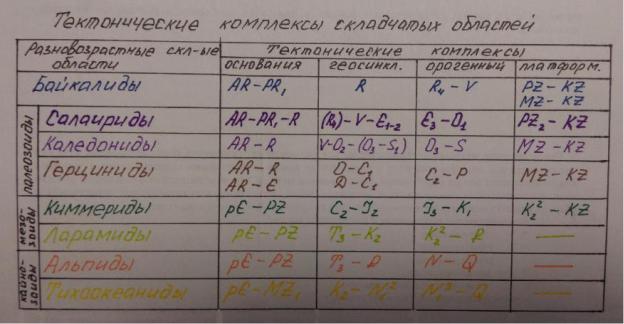 Тектонические комплексы складчатых областей
Разновозрастные скл-ые области Тектонические комплексы
основания геосинкл. орогенный платформ.
Байкалиды AR–PR₁ R R₄–V PZ–KZ
MZ–KZ
палеозоиды
Салаириды AR–PR₁–R (R₄)–V–Є₁₋₂ Є₃–D₁ PZ₂–KZ
Каледониды AR–R V–O₂–(O₃–S₁) D₃–S MZ–KZ
Герциниды AR–R O–C₁ C₂–P MZ–KZ
AR–Є D–C₁
мезозоиды
Киммериды pЄ–PZ C₂–J₂ J₃–K₁ K₂²–KZ
Ларамиды pЄ–PZ T₃–K₂ K₂²–P —
кайнозоиды
Альпиды pЄ–PZ T₃–P N–Q —
Тихоокеаниды pЄ–MZ₁ K₂–N₁² N₁³–Q —